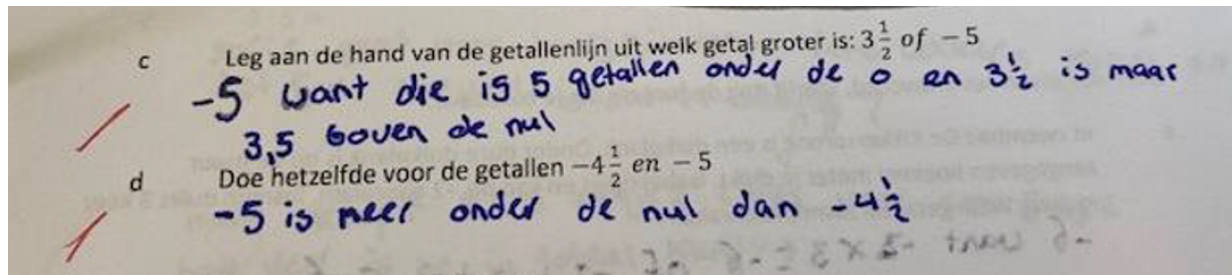 c Leg aan de hand van de getallenlijn uit welk getal groter is: 3 1/2 of − 5
-5 want die is 5 getallen onder de 0 en 3 1/2 is maar
3,5 boven de nul
d Doe hetzelfde voor de getallen −4 1/2 en − 5
-5 is meer onder de nul dan -4 1/2